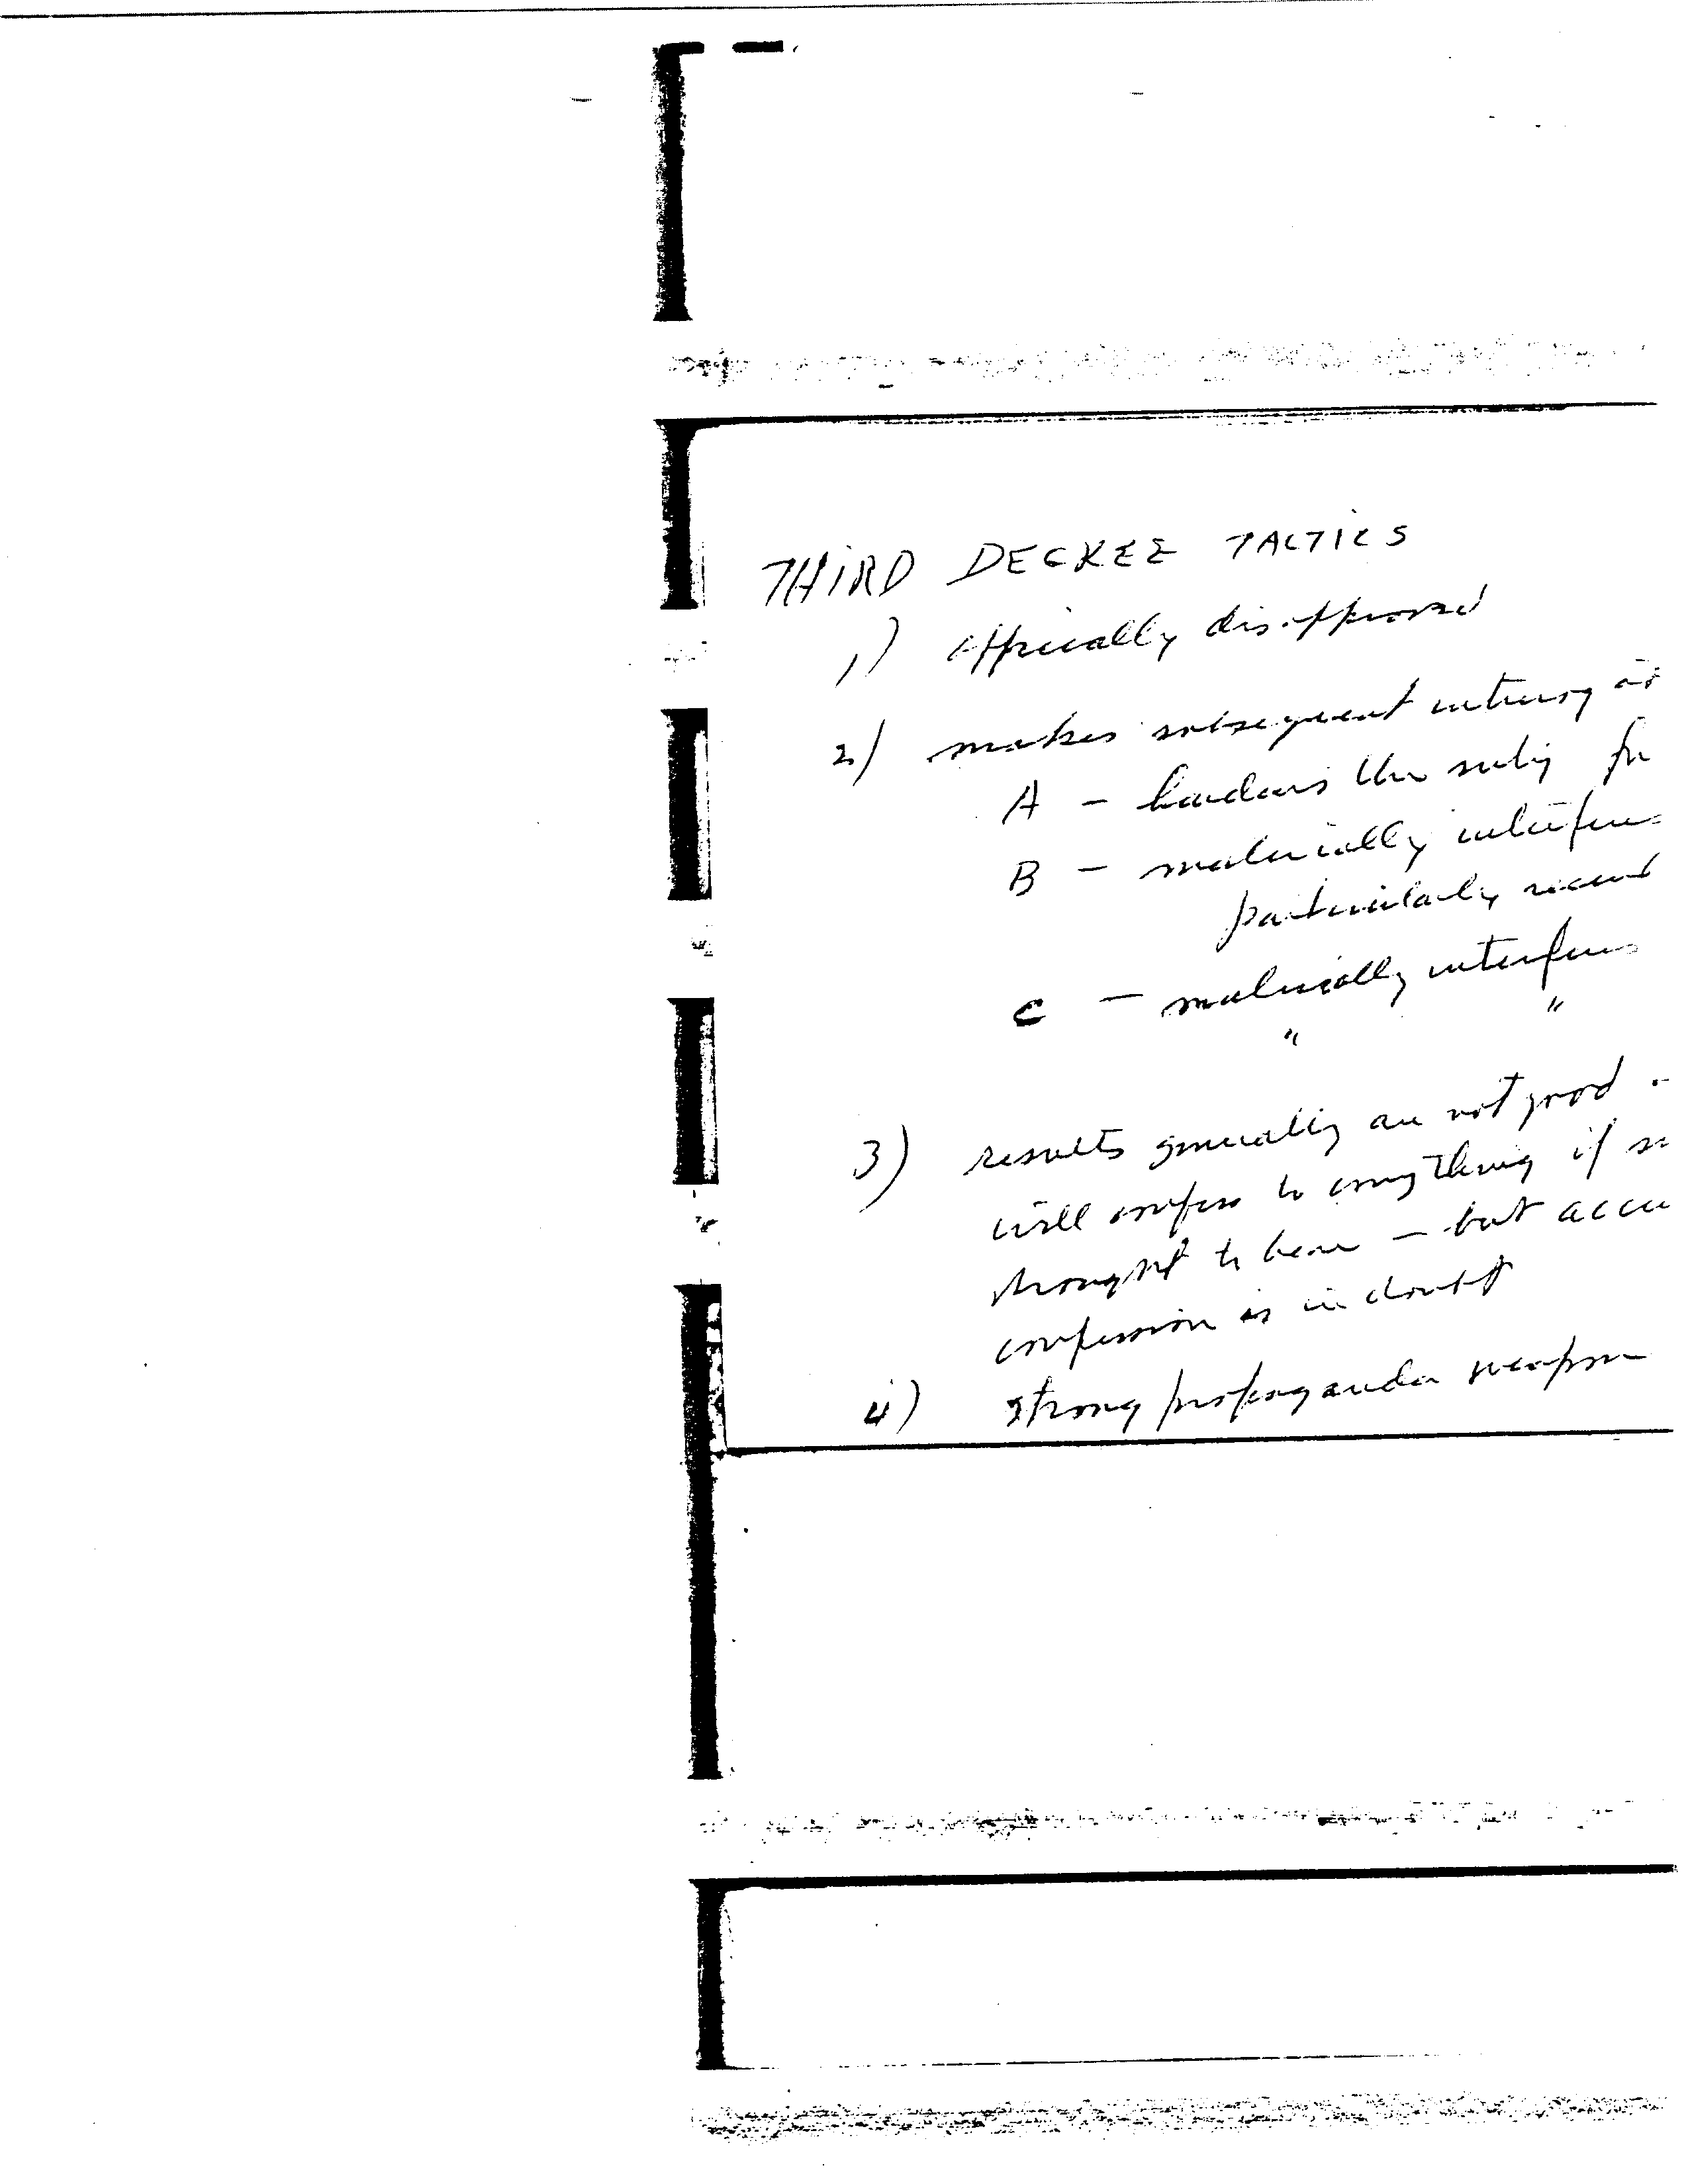 THIRD DEGREE TACTICS
1) officially disapproved
2) makes subsequent
A - hardens the subj for
B - materially interferes
particularly recent
C - materially interferes
" "
3) results generally are not good
will confess to anything if
brought to bear - but accu
confession is in doubt
4) strong propaganda weapon